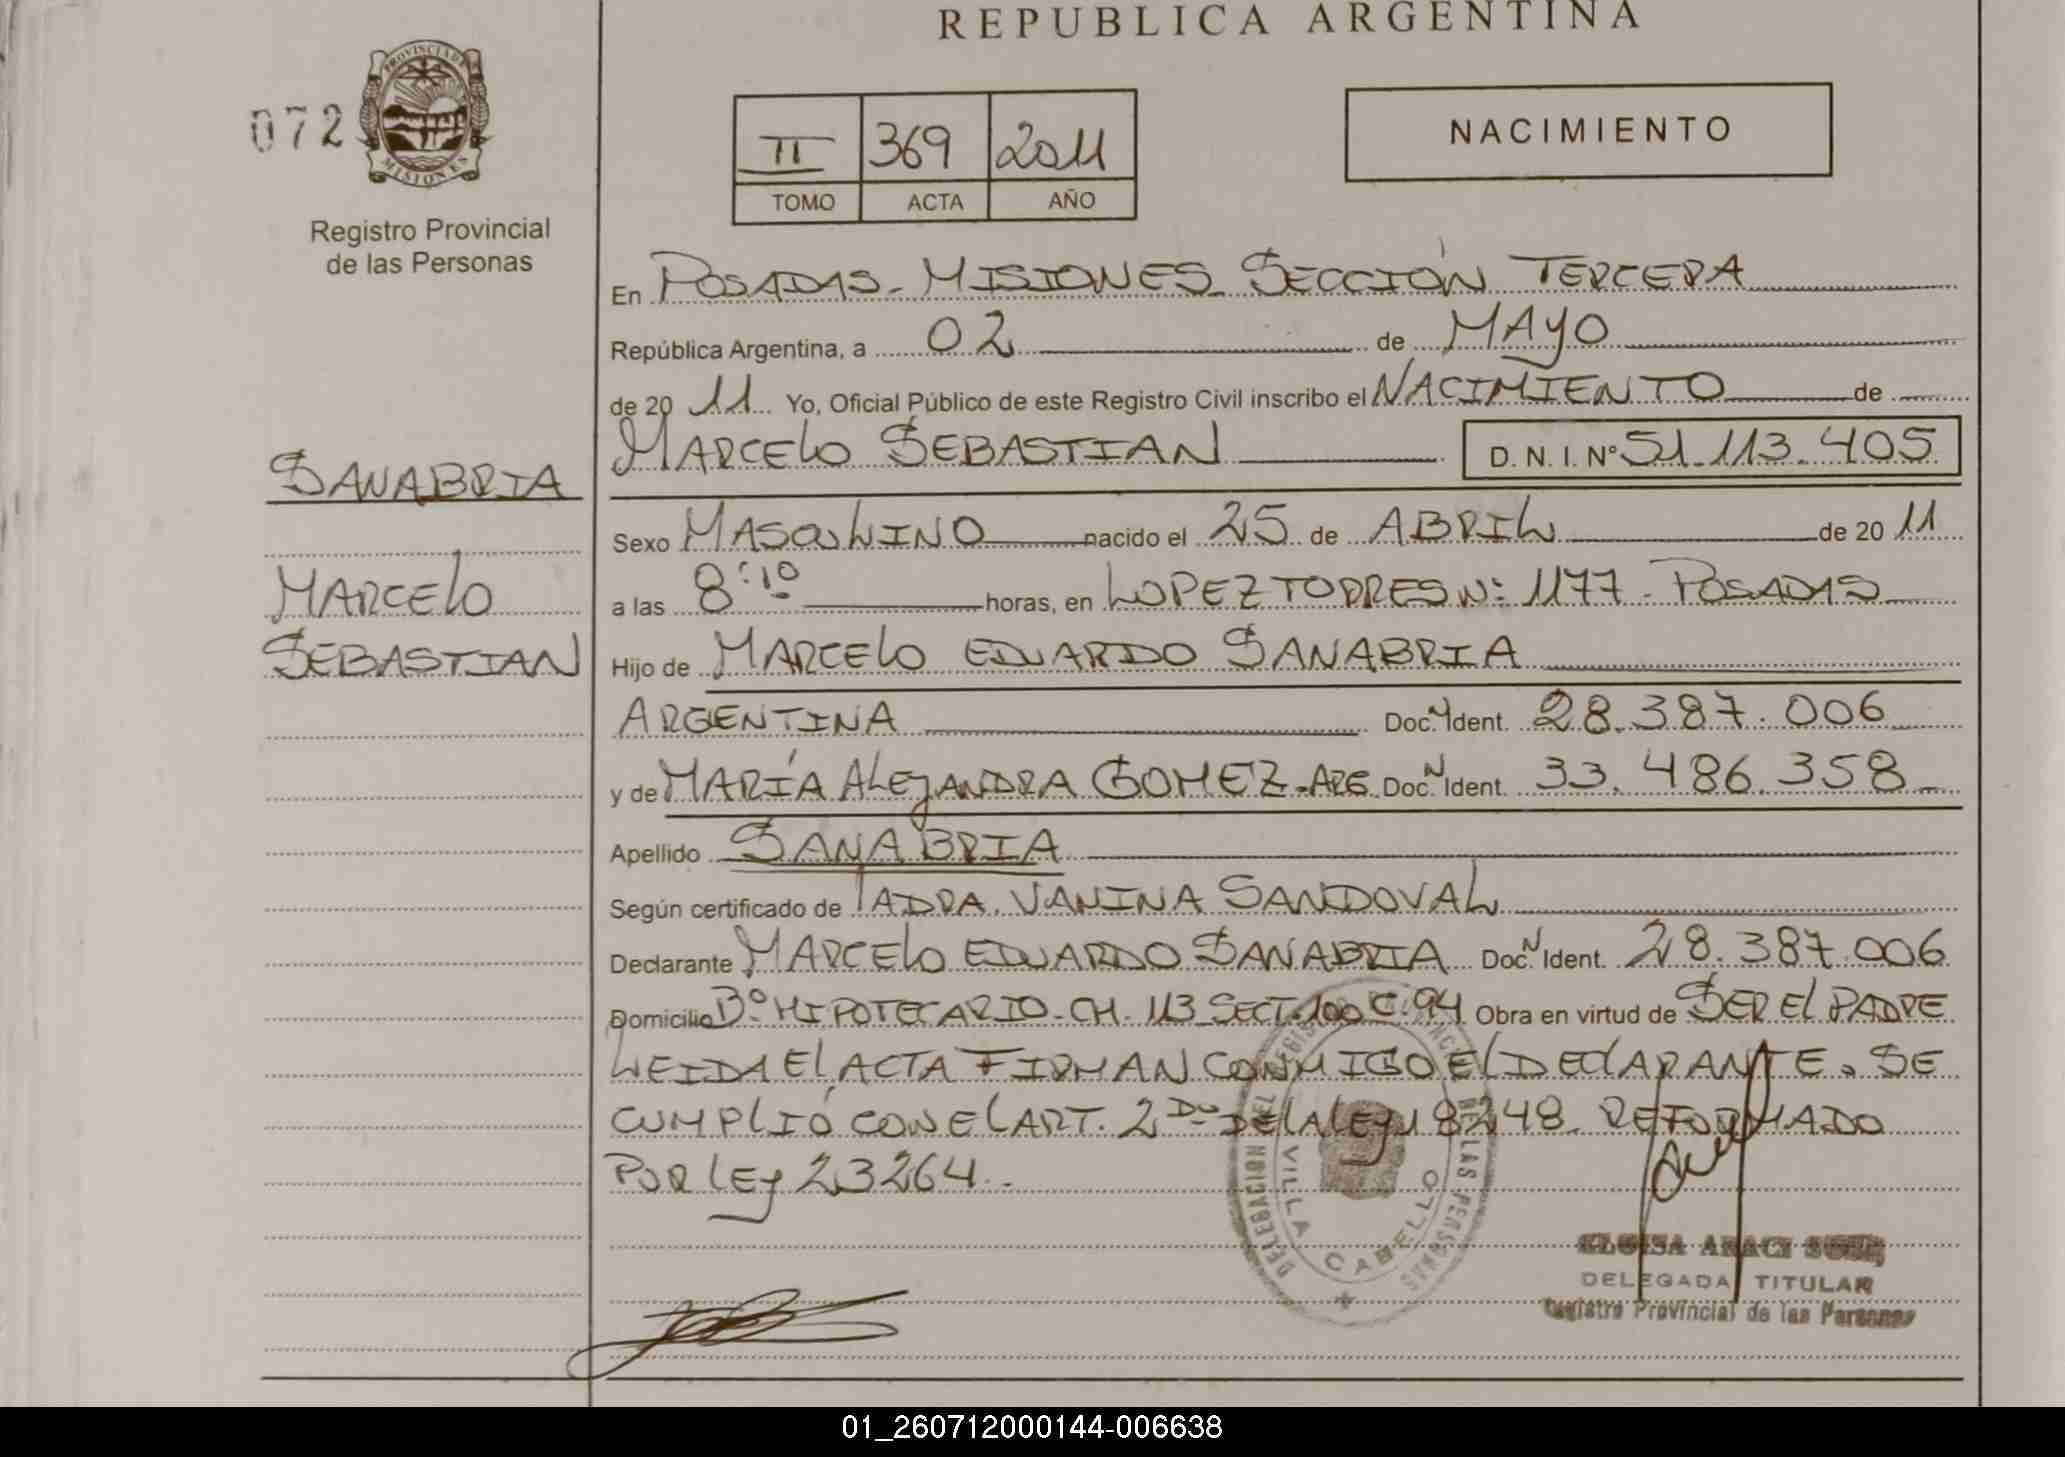 REPUBLICA ARGENTINA
072
PROVINCIA DE MISIONES
Registro Provincial
de las Personas
II 369 2011
TOMO ACTA AÑO
NACIMIENTO
En POSADAS - MISIONES SECCIÓN TERCERA
República Argentina, a 02 de MAYO
de 2011 Yo, Oficial Público de este Registro Civil inscribo el NACIMIENTO de
MARCELO SEBASTIAN D. N. I. Nº 51.113.405
SANABRIA
MARCELO
SEBASTIAN
Sexo MASCULINO nacido el 25 de ABRIL de 2011
a las 8:10 horas, en LOPEZ TORRES Nº: 1177 - POSADAS
Hijo de MARCELO EDUARDO SANABRIA
ARGENTINA Doc. N Ident. 28.387.006
y de MARÍA ALEJANDRA GOMEZ - ARG. Doc. N Ident. 33.486.358
Apellido SANABRIA
Según certificado de VANINA SANDOVAL
Declarante MARCELO EDUARDO SANABRIA Doc. N Ident. 28.387.006
Domicilio Bº HIPOTECARIO - CH. 113 SECT. 100 C. 94 Obra en virtud de SER EL PADRE
LEIDA EL ACTA FIRMAN CONMIGO EL DECLARANTE. SE
CUMPLIÓ CON EL ART. 2DO DE LA LEY 18248 REFORMADO
POR LEY 23264.
DELEGACION DEL REGISTRO PROVINCIAL DE LAS PERSONAS
VILLA CABELLO
DELEGADA TITULAR
Registro Provincial de las Personas
01_260712000144-006638